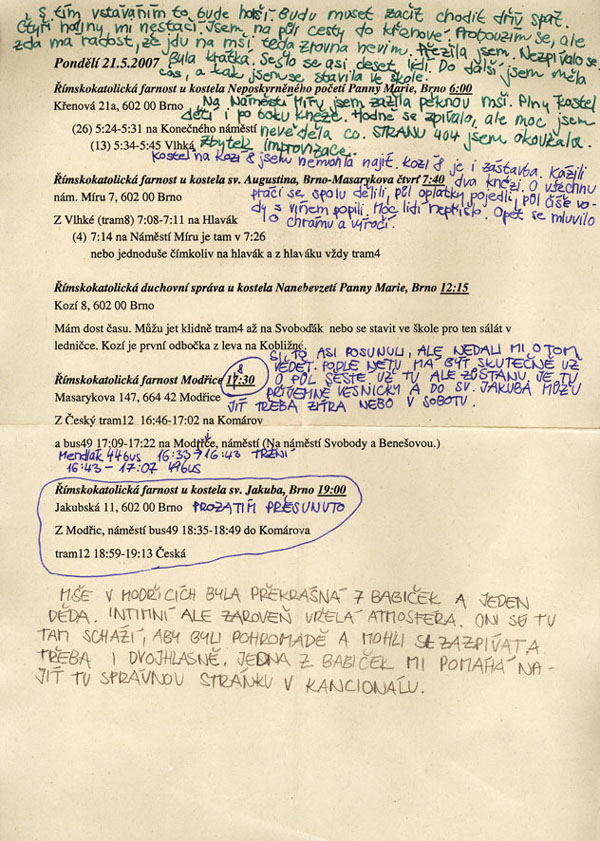 S tím vstáváním to bude horší. Budu muset začít chodit dřív spát.
Čtyři hodiny mi nestačí. Jsem na půl cesty do Křenové. Probouzím se, ale
zda má radost, že jdu na mši, teda zrovna nevím. Přežila jsem. Nezpívalo se.
Byla krátká. Sešlo se asi deset lidí. Do další jsem měla
čas, a tak jsem se stavila ve škole.
Pondělí 21.5.2007
Římskokatolická farnost u kostela Neposkvrněného početí Panny Marie, Brno 6:00
Křenová 21a, 602 00 Brno
(26) 5:24-5:31 na Konečného náměstí
(13) 5:34-5:45 Vlhká
Na Náměstí Míru jsem zažila peknou mši. Plný kostel
dětí i po boku kněze. Hodne se zpívalo, ale moc jsem
nevěděla co. STRANU 404 jsem okoukala.
Zbytek improvizace.
Kostel na Kozí 8 jsem nemohla najít. Kozí 8 je i zástavba. Kázili
dva knězi. O všechnu
práci se spolu dělili, půl oplatky pojedli, půl číše vo-
dy s vínem popili. Moc lidí nepřišlo. Opět se mluvilo
o chrámu a výročí.
Římskokatolická farnost u kostela sv. Augustina, Brno-Masarykova čtvrť 7:40
nám. Míru 7, 602 00 Brno
Z Vlhké (tram8) 7:08-7:11 na Hlavák
(4) 7:14 na Náměstí Míru je tam v 7:26
nebo jednoduše čímkoliv na hlavák a z hlaváku vždy tram4
Římskokatolická duchovní správa u kostela Nanebevzetí Panny Marie, Brno 12:15
Kozí 8, 602 00 Brno
Mám dost času. Můžu jet klidně tram4 až na Svoboďák nebo se stavit ve škole pro ten salát v
ledničce. Kozí je první odbočka z leva na Kobližné.
SI TO ASI POSUNULI, ALE NEDALI MI O TOM
VĚDĚT. PODLE NETU MÁ BÝT SKUTEČNĚ UŽ
O PŮL ŠESTÉ UŽ TU ALE ZŮSTANU. JE TU
PŘÍJEMNĚ VESNICKY A DO SV. JAKUBA MŮŽU
JÍT TŘEBA ZÍTRA NEBO V SOBOTU.
Římskokatolická farnost Modřice 17:30
8
Masarykova 147, 664 42 Modřice
Z Český tram12 16:46-17:02 na Komárov
a bus49 17:09-17:22 na Modřice, náměstí (Na náměstí Svobody a Benešovou.)
Mendlák 44bus 16:33 → 16:43 TRŽNÍ
16:43 – 17:07 49BUS
Římskokatolická farnost u kostela sv. Jakuba, Brno 19:00
Jakubská 11, 602 00 Brno PROZATÍM PŘESUNUTO
Z Modřic, náměstí bus49 18:35-18:49 do Komárova
tram12 18:59-19:13 Česká
MŠE V MODŘICÍCH BYLA PŘEKRÁSNÁ 7 BABIČEK A JEDEN
DĚDA. INTIMNÍ ALE ZÁROVEŇ VŘELÁ ATMOSFÉRA. ONI SE TU
TAM SCHÁZÍ, ABY BYLI POHROMADĚ A MOHLI SI ZAZPÍVAT A
TŘEBA I DVOJHLASNĚ. JEDNA Z BABIČEK MI POMÁHÁ NA-
JÍT TU SPRÁVNOU STRÁNKU V KANCIONÁLU.